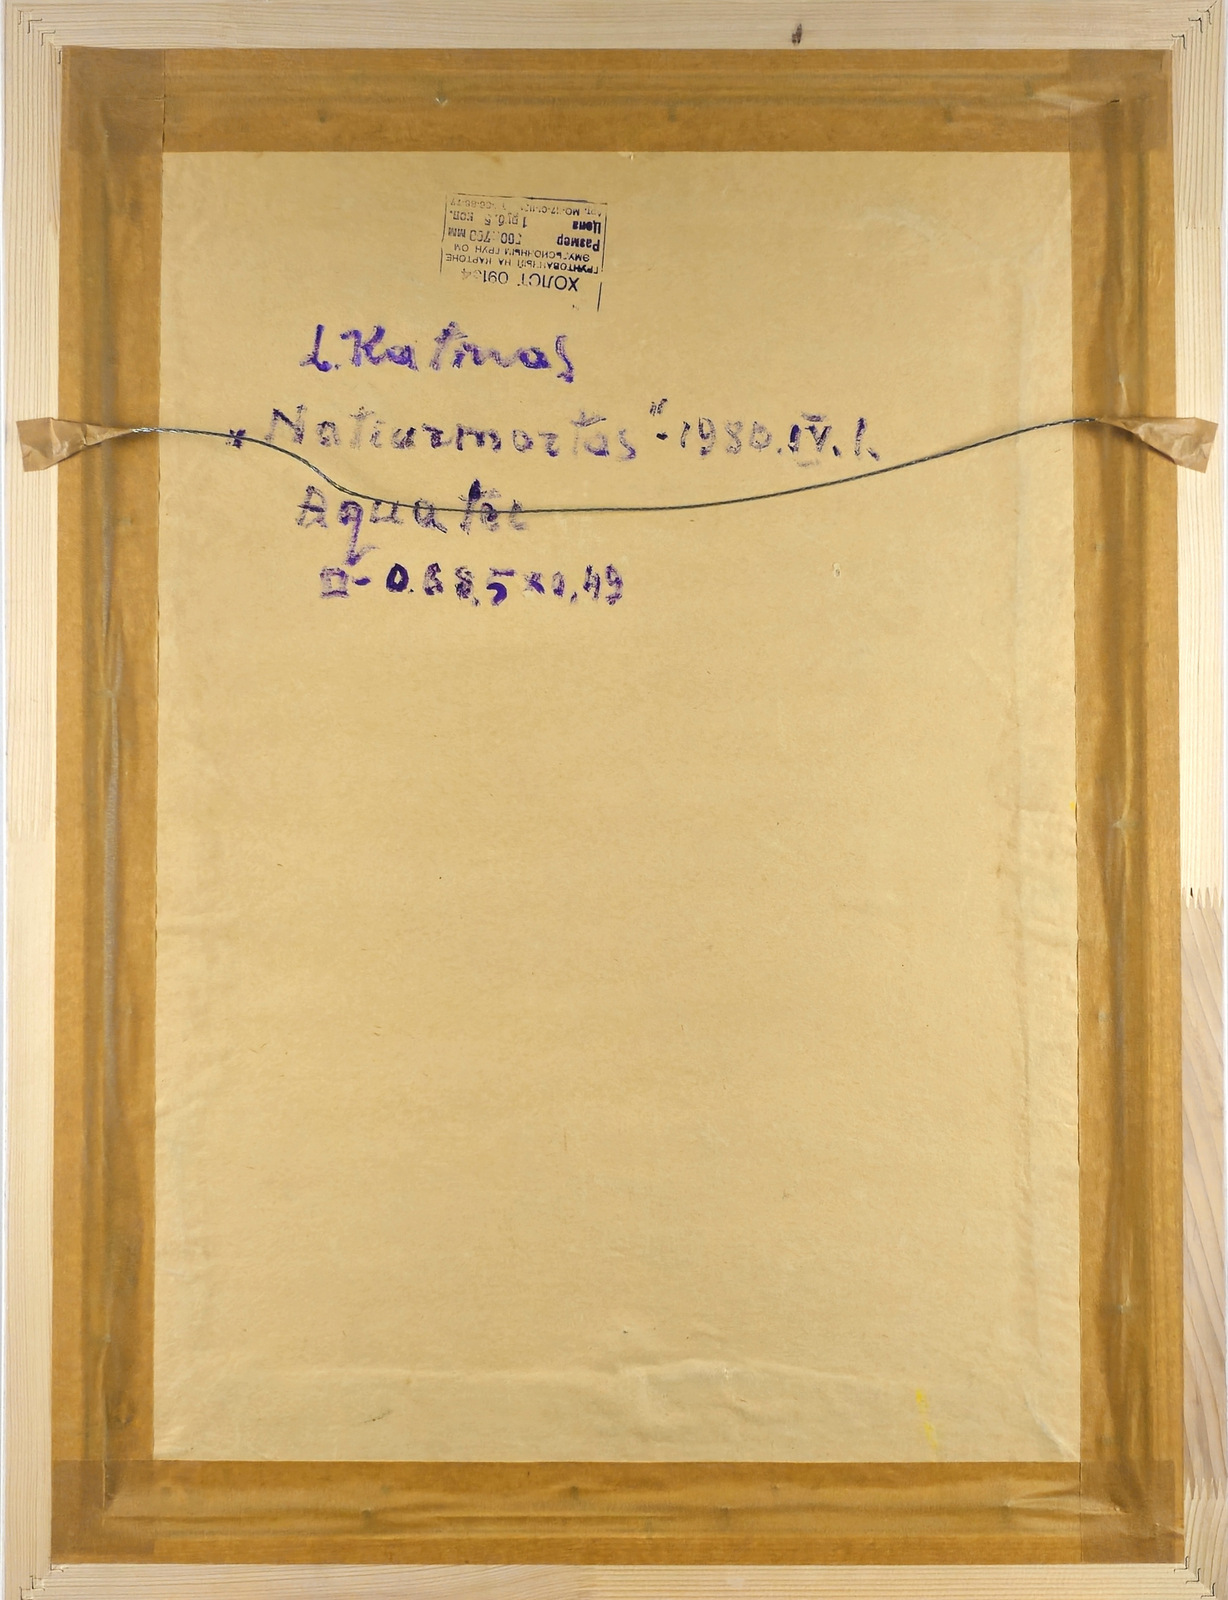 ХОЛСТ
ГРУНТОВАННЫЙ НА КАРТОНЕ
ЭМУЛЬСИОННЫМ ГРУНТОМ
Размер 500×700 мм
Цена 1 руб. 5 коп.
L. Katinas
„Natiurmortas“ - 1980. IV. 1.
Aquatec
- 0.68,5 x 0,49